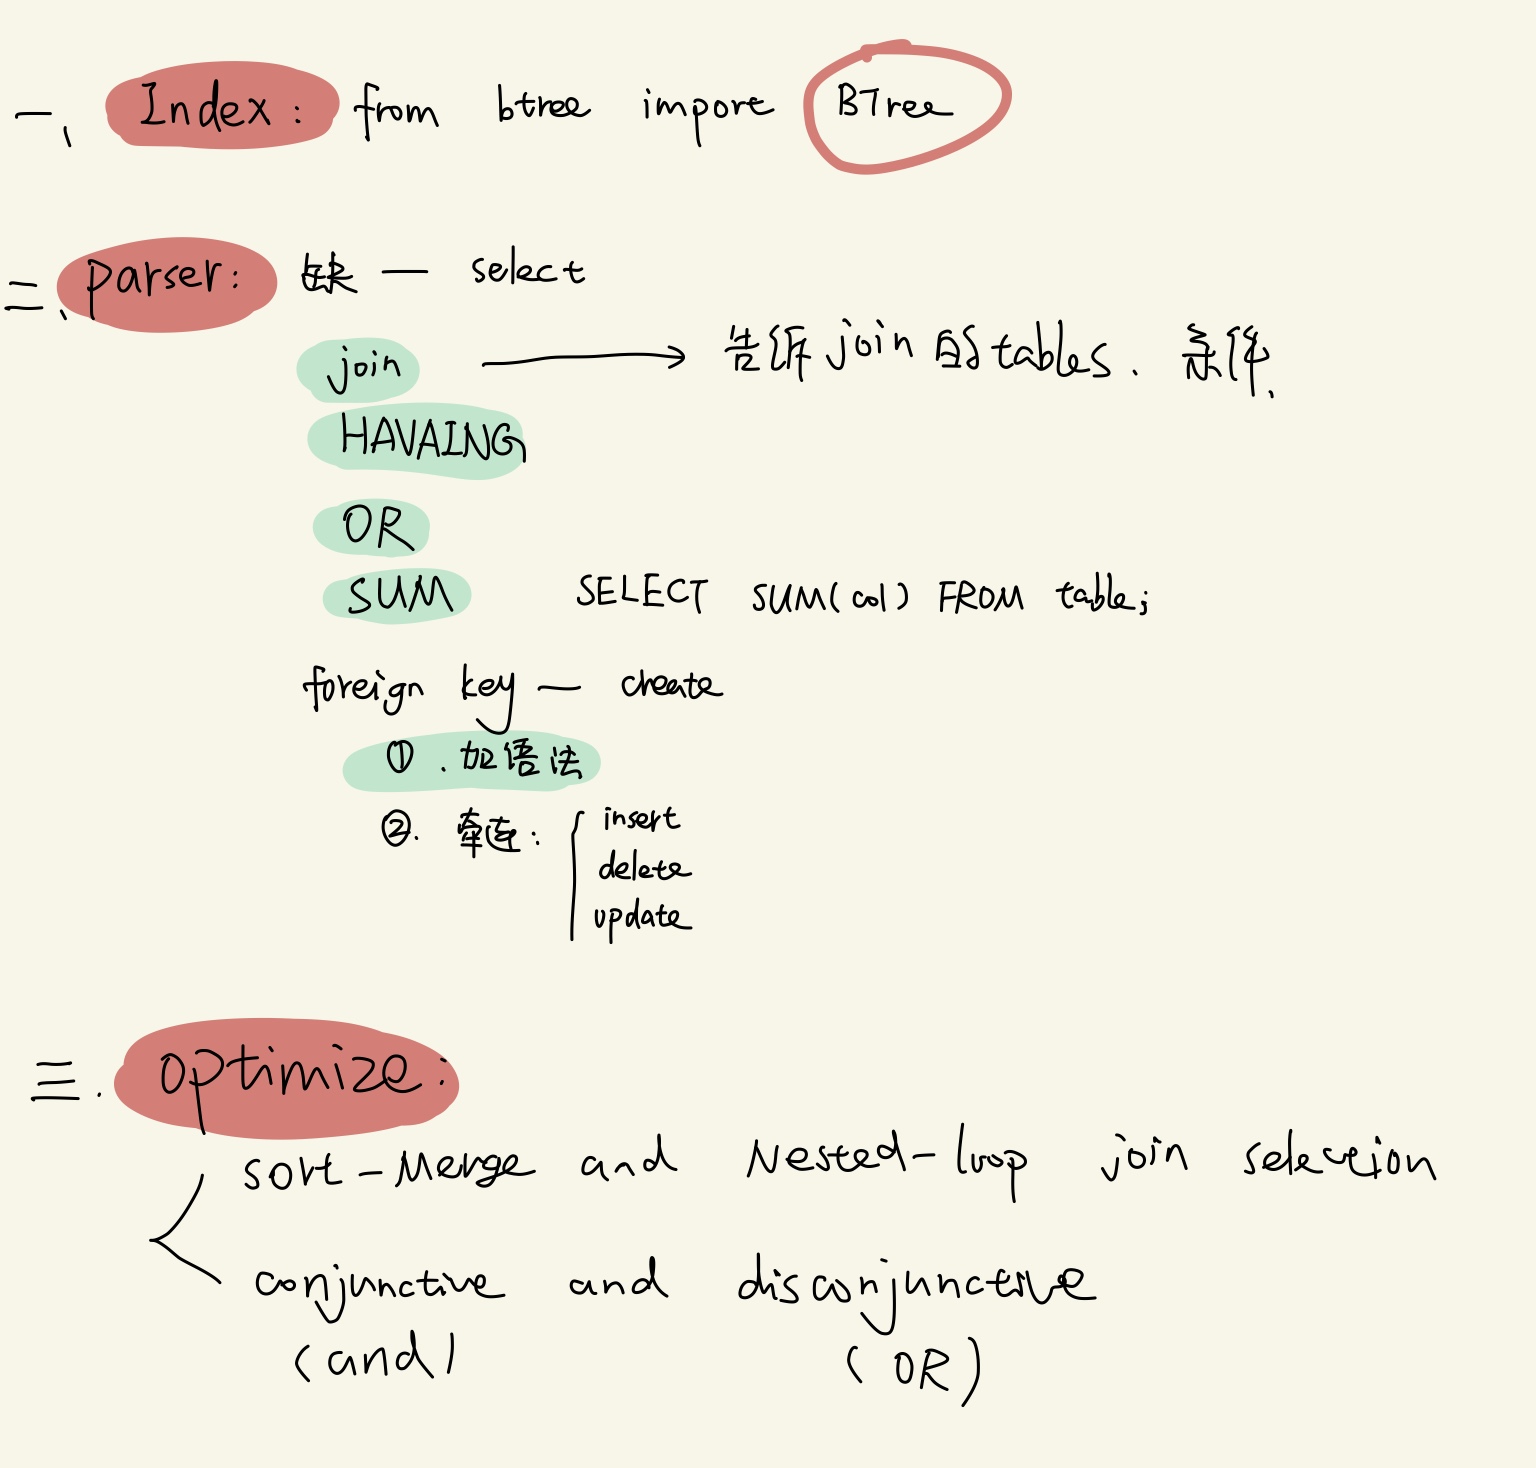 一、Index: from btree import BTree
二、parser: 缺 — select
join → 告诉join的tables. 条件.
HAVAING
OR
SUM SELECT SUM(col) FROM table;
foreign key — create
①. 加语法
②. 牵连: { insert
delete
update
三. optimize:
sort-Merge and Nested-loop join selection
conjunctive and disconjunctive
(and) (OR)